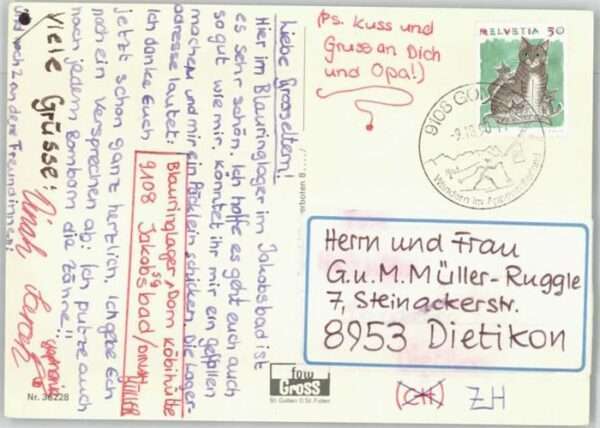 Liebe Grosseltern!
Hier im Blauringlager im Jakobsbad ist
es sehr schön. Ich hoffe es geht euch auch
so gut wie mir, könntet ihr mir ein gefallen
machen und mir ein Päcklein schicken. Die Lager-
adresse lautet:
Blauringlager, Dorn Köbihütte
9108 Jakobsbad/
Ich danke Euch
jetzt schon ganz herzlich. Ich gebe Euch
noch ein versprechen ab: Ich putze auch
nach jedem Bombom die Zähne!!
Viele Grüsse:
und noch 2 andere Freundinnen:
(Ps. Kuss und
Gruss an Dich
und Opa!)
HELVETIA 50
9108 GON
Wandern im Appenzellerland
Herrn und Frau
G.u.M. Müller-Ruggle
7, Steinackerstr.
8953 Dietikon
(CH) ZH
foto
Gross
St. Gallen
Nr. 36228